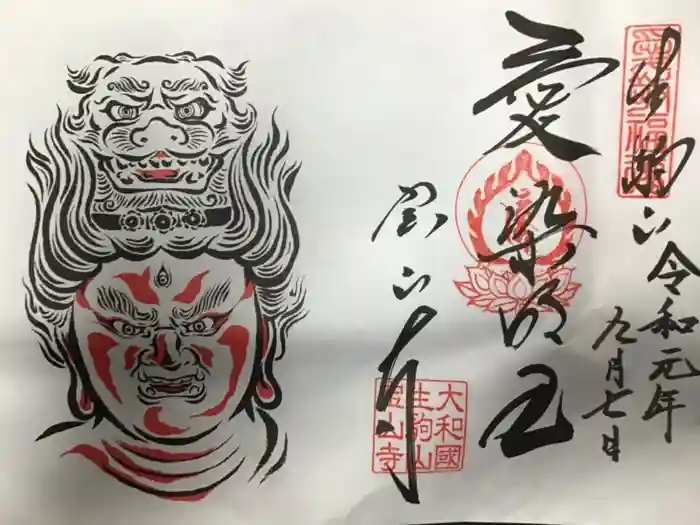 生駒山
令和元年
九月七日
愛染明王
寳山寺
大和國
生駒山
寳山寺